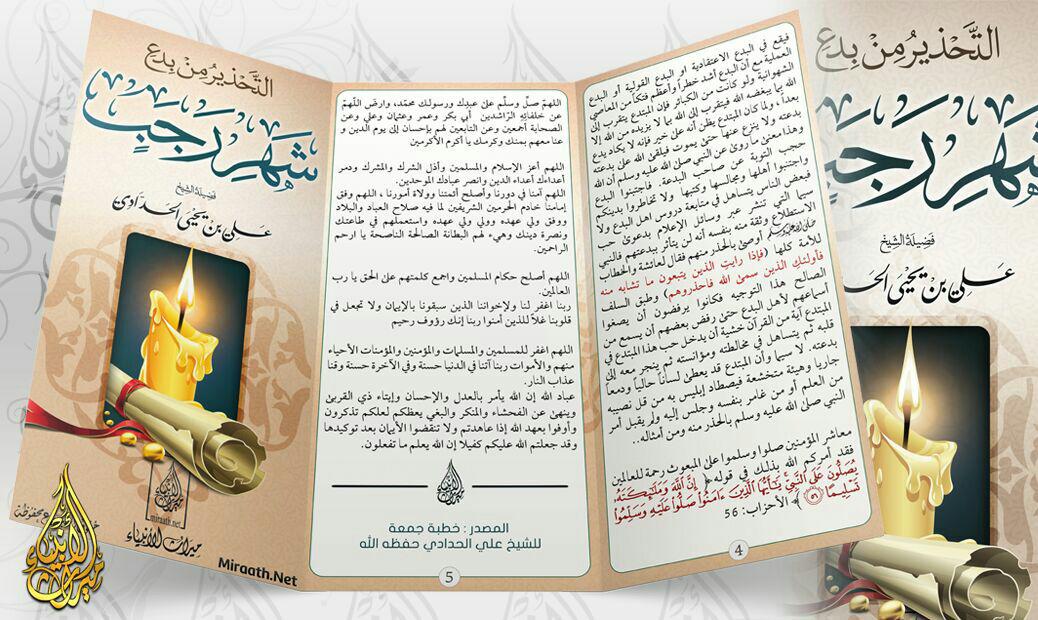 التَّحْذِيرُ مِنْ بِدَعِ
شَهْرِ رَجَبٍ
فَضِيلَةُ الشَّيْخِ
عَلِيّ بْنِ يَحْيَى الحَدَّادِي
فيقع في البدع الاعتقادية او البدع القولية أو البدع
العملية مع أن البدع أشد خطراً وأعظم فتكاً من المعاصي
الشهوانية ولو كانت من الكبائر فإن المبتدع يتقرب إلى
الله بما يبغضه الله فيتقرب إلى الله بما لا يزيده من الله إلا
بعداً، ولما كان المبتدع يظن أنه على خير فإنه لا يكاد يدع
بدعته ولا ينزع عنها حتى يموت فيلقى الله على بدعته
وهذا معنى ما روئ عن النبي صلى الله عليه وسلم أن الله
حجب التوبة عن صاحب البدعة. فاجتنبوا البدع
واجتنبوا أهلها ومجالسها وكتبها ولا تخاطروا بدينكم
فبعض الناس يتساهل في متابعة دروس اهل البدع ولا
سيما التي تنشر عبر وسائل الإعلام بدعوى حب
الاستطلاع وثقة منه بنفسه أنه لن يتأثر ببدعتهم فالنبي
صلى الله عليه وسلم أوصى بالحذر منهم فقال لعائشة والخطاب
للأمة كلها (فإذا رايتِ الذين يتبعون ما تشابه منه
فأولئك الذين سمى الله فاحذروهم) وطبق السلف
الصالح هذا التوجيه فكانوا يرفضون أن يصغوا
أسماعهم لاهل البدع حتى رفض بعضهم أن يسمع من
المبتدع آية من القرآن خشية أن يدخل حب هذا المبتدع في
قلبه ثم يتساهل في مخالطته ومؤانسته ثم ينجر معه إلى
بدعته. لا سيما وأن المبتدع قد يعطى لساناً حالياً ودمعاً
جاريا وهيئة متخشعة فيصطاد إبليس به من قل نصيبه
من العلم أو من غامر بنفسه وجلس إليه ولم يقبل أمر
النبي صلى الله عليه وسلم بالحذر منه ومن أمثاله..
معاشر المؤمنين صلوا وسلموا على المبعوث رحمة للعالمين
فقد أمركم الله بذلك في قوله ﴿ إِنَّ ٱللَّهَ وَمَلَٰٓئِكَتَهُۥ
يُصَلُّونَ عَلَى ٱلنَّبِيِّ يَٰٓأَيُّهَا ٱلَّذِينَ ءَامَنُوا۟ صَلُّوا۟ عَلَيْهِ وَسَلِّمُوا۟
تَسْلِيمًا ٥٦ ﴾ الأحزاب: 56
4
اللهمّ صلّ وسلّم على عبدك ورسولك محمّد، وارضَ اللّهمّ
عن خلفائِهِ الرّاشدين أبي بكر وعمر وعثمان وعلي وعن
الصحابة أجمعين وعن التابعين لهم بإحسان إلى يوم الدين و
عنا معهم بمنك وكرمك يا أكرم الأكرمين
اللهم أعز الإسلام والمسلمين وأذل الشرك والمشرك ودمر
أعداءك أعداء الدين وانصر عبادك الموحدين.
اللهم آمنا في دورنا وأصلح أئمتنا وولاة أمورنا ، اللهم وفق
إمامنا خادم الحرمين الشريفين لما فيه صلاح العباد والبلاد
ووفق ولي عهده وولي ولي عهده واستعملهم في طاعتك
ونصرة دينك وهيء لهم البطانة الصالحة الناصحة يا ارحم
الراحمين.
اللهم أصلح حكام المسلمين واجمع كلمتهم على الحق يا رب
العالمين.
ربنا اغفر لنا ولإخواننا الذين سبقونا بالإيمان ولا تجعل في
قلوبنا غلاً للذين آمنوا ربنا إنك رؤوف رحيم
اللهم اغفر للمسلمين والمسلمات والمؤمنين والمؤمنات الأحياء
منهم والأموات ربنا آتنا في الدنيا حسنة وفي الآخرة حسنة وقنا
عذاب النار.
عباد الله إن الله يأمر بالعدل والإحسان وإيتاء ذي القربى
وينهى عن الفحشاء والمنكر والبغي يعظكم لعلكم تذكرون
وأوفوا بعهد الله إذا عاهدتم ولا تنقضوا الأيمان بعد توكيدها
وقد جعلتم الله عليكم كفيلاً إن الله يعلم ما تفعلون.
المصدر : خطبة جمعة
للشيخ علي الحدادي حفظه الله
5
التَّحْذِيرُ مِنْ بِدَعِ
شَهْرِ رَجَبٍ
فَضِيلَةُ الشَّيْخِ
عَلِيّ بْنِ يَحْيَى الحَدَّادِي
miraath.net
ميراث الأنبياء
Miraath.Net
ميراث الأنبياء